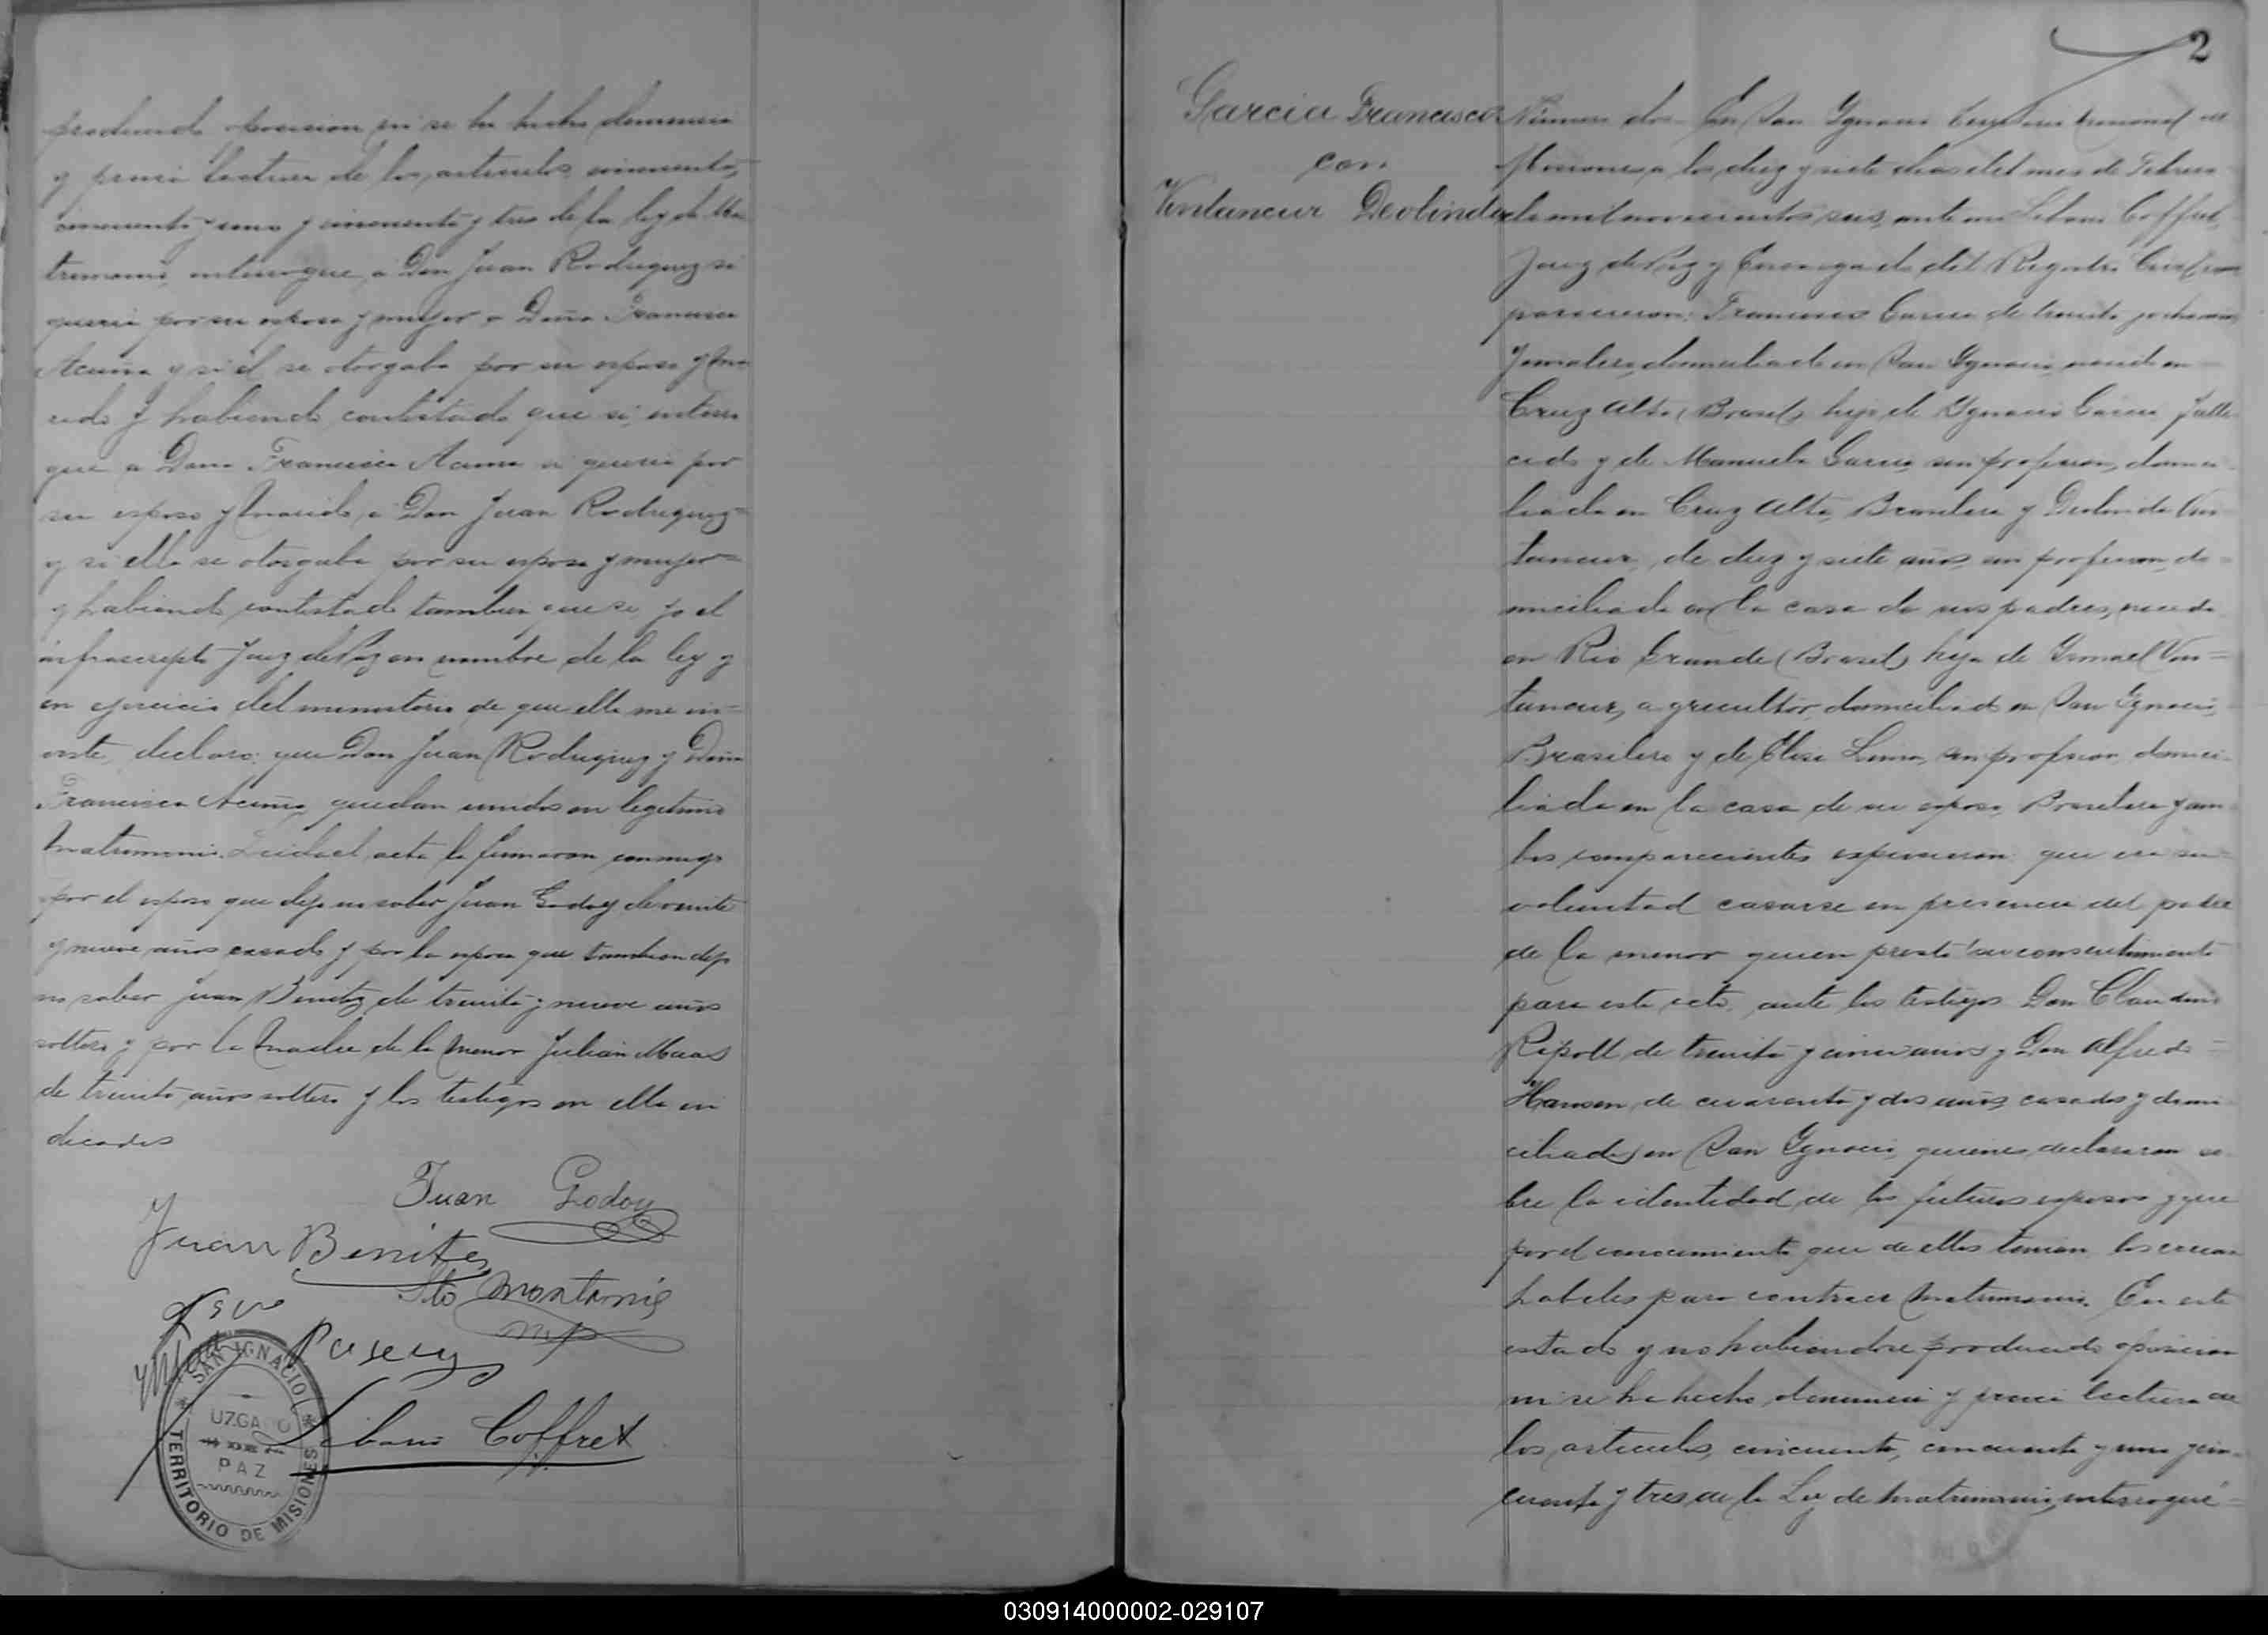 producido oposicion ni se ha hecho denuncia
y previa lectura de los articulos cincuenta,
cincuenta y uno y cincuenta y tres de la ley de Ma
trimonio, interrogue, a Don Juan Rodriguez si
queria por su esposa y mujer a Doña Francisca
Acuña y si él se otorgaba por su esposo y ma
rido y habiendo contestado que si, interro
gue a Dona Francisca Acuna si queria por
su esposo y marido, a Don Juan Rodriguez
y si ella se otorgaba por su esposa y mujer
y habiendo contestado tambien que si, yo el
infrascripto Juez de Paz en nombre de la ley y
en ejercicio del ministerio de que ella me in=
viste, declaro: que Don Juan Rodriguez y Doña
Francisca Acuña, quedan unidos en legitimo
Matrimonio. Leida el acta la firmaron conmigo
por el esposo que dijo no saber Juan Godoy de veinte
y nueve años casado y por la esposa que tambien dijo
no saber Juan Benitez de treinta y nueve años
soltero y por la Madre de la menor Julian Maas
de treinta años soltero y los testigos en ella in
dicados
Juan Godoy
Juan Benites
Sto Montania
SAN IGNACIO
JUZGADO
DE
PAZ
TERRITORIO DE MISIONES
Libano Coffret
2
Garcia Francisco
con
Ventancur Deolinda
Número dos En San Ygnacio territorio nacional de
Misiones, a los diez y siete dias del mes de Febrero
de mil novecientos seis, ante mi Libano Coffret,
Juez de Paz y Encargado del Registro Civil com
parecieron: Francisco Garcia de treinta y ocho años
Jornalero, domiciliado en San Ygnacio, nacido en
Cruz Alta (Brasil) hijo de Ygnacio Garcia, falle
cido y de Manuela Garcia, sin profesion, domici
liada en Cruz Alta, Brasilera y Deolinda Ven
tancur, de diez y siete años, sin profesion, do=
miciliada en la casa de sus padres, nacida
en Rio Grande (Brasil) hija de Ismael Ven=
tancur, agricultor, domiciliado en San Ygnacio,
Brasilero y de Elisa Luna, sin profesion, domici
liada en la casa de su esposo, Brasilera y am
bos comparecientes expusieron: que era su
voluntad casarse en presencia del padre
de la menor quien prestó su consentimiento
para este acto, ante los testigos Don Claudino
Ripoll, de treinta y cinco años y Don Alfredo =
Hansen, de cuarenta y dos años, casados y domi
ciliados en San Ygnacio, quienes declararon so
bre la identidad de los futuros esposos y que
por el conocimiento que de ellos tenian los creian
habiles para contraer Matrimonio. En este
estado y no habiendose producido oposicion
ni se ha hecho denuncia y previa lectura de
los articulos, cincuenta, cincuenta y uno y cin=
cuenta y tres de la Ley de Matrimonio, interrogué=
030914000002-029107